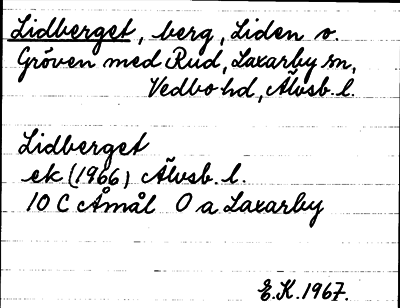 Lidberget, berg, Liden o.
Gröven med Rud, Laxarby sn,
Vedbo hd, Älvsb. l.
Lidberget
ek (1966) Älvsb. l.
10 C Åmål O a Laxarby
E.K. 1967.